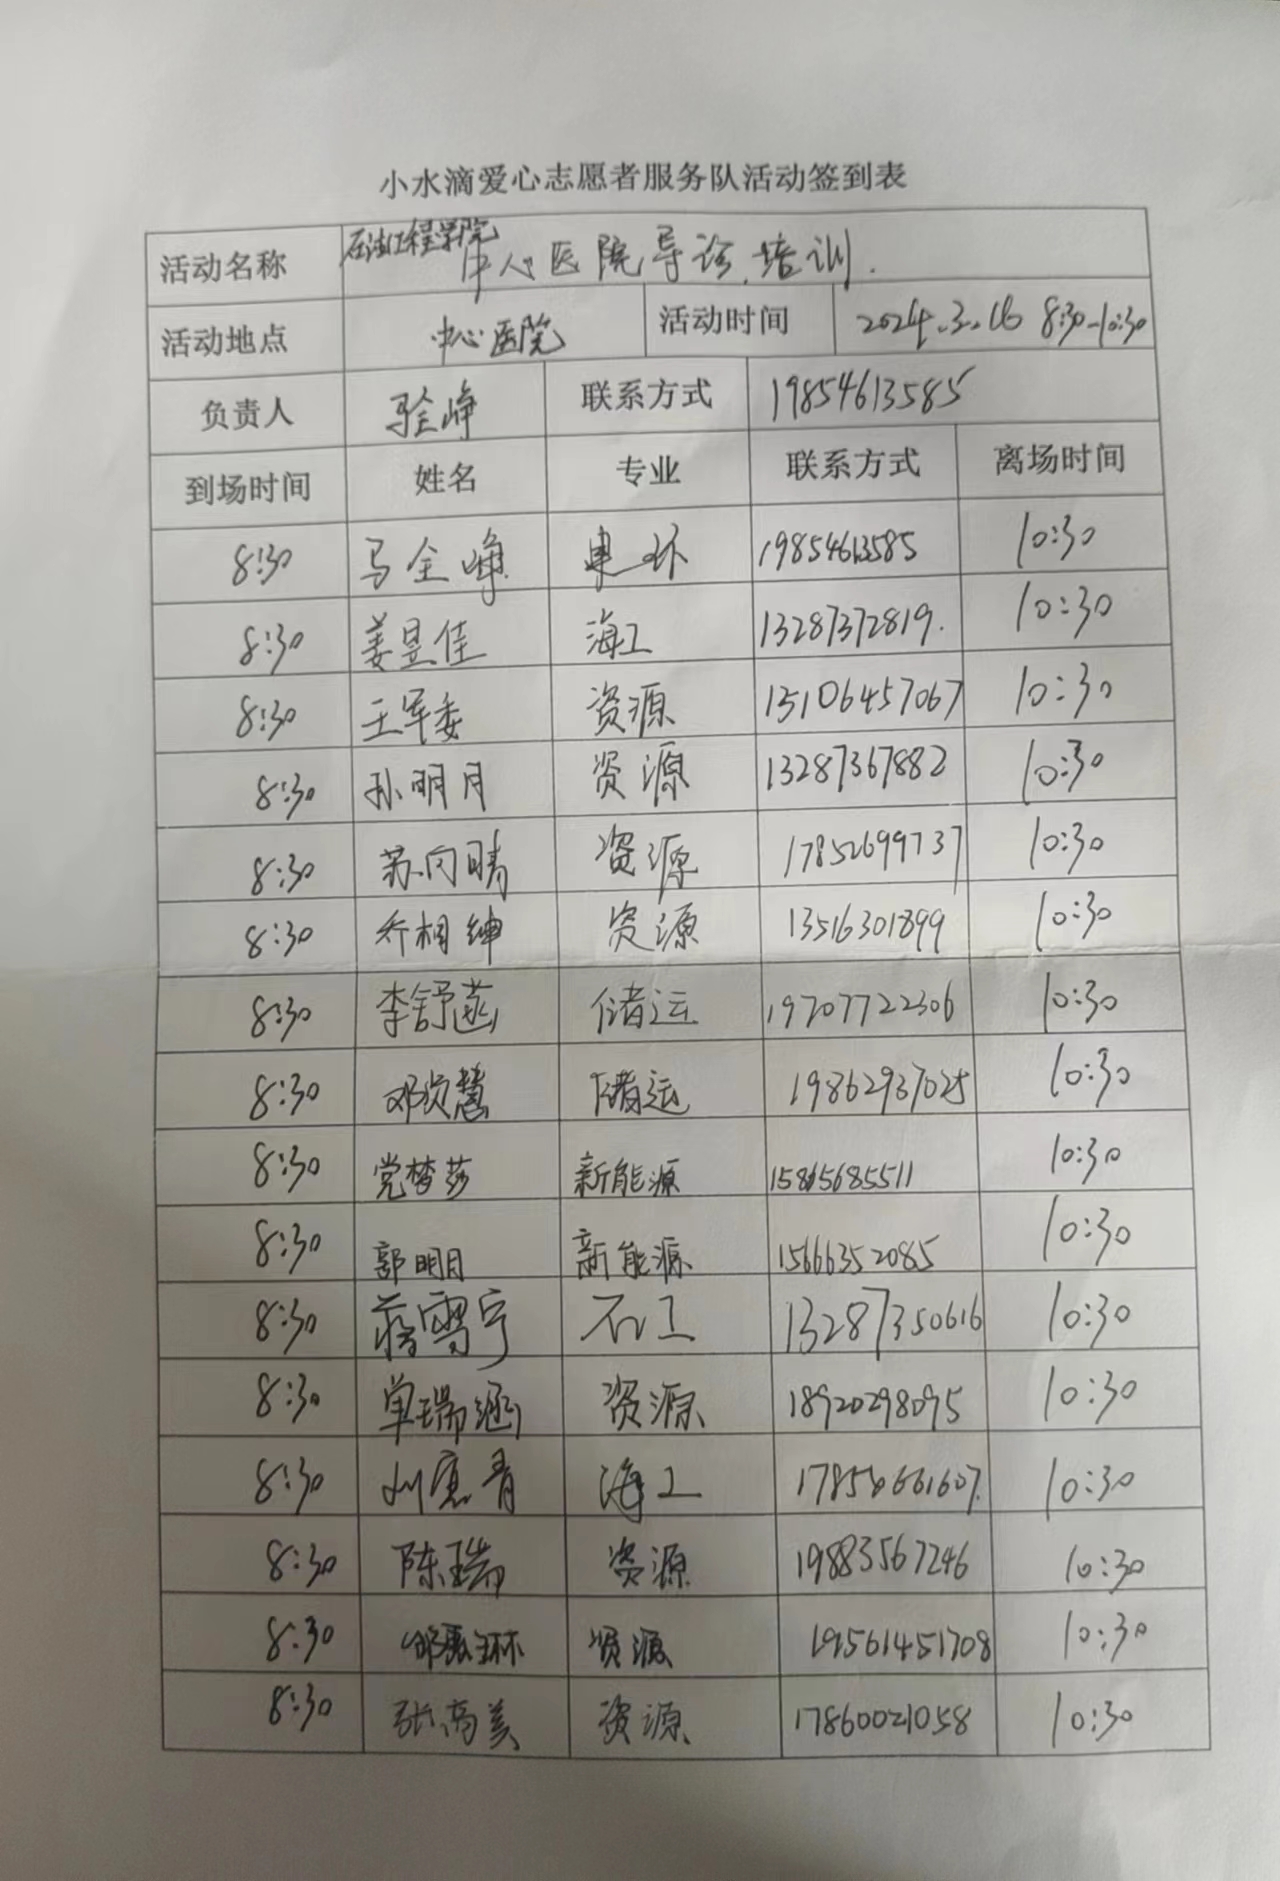 小水滴爱心志愿者服务队活动签到表
活动名称 石油工程学院中心医院导诊培训.
活动地点 中心医院 活动时间 2024.3.16 8:30-10:30
负责人 马全峥 联系方式 19854613585
到场时间 姓名 专业 联系方式 离场时间
8:30 马全峥 建环 19854613585 10:30
8:30 姜昱佳 海工 13287372819. 10:30
8:30 王军委 资源 15106457067 10:30
8:30 孙明月 资源 13287367882 10:30
8:30 苏向晴 资源 17852699737 10:30
8:30 乔相绅 资源 13516301899 10:30
8:30 李舒菡 储运 19707722306 10:30
8:30 邓贤慧 储运 19862937025 10:30
8:30 党梦莎 新能源 15865685511 10:30
8:30 郭明月 新能源 15666352085 10:30
8:30 蒋雪宁 石工 13287350616 10:30
8:30 单瑞涵 资源 18920298095 10:30
8:30 刘惠青 海工 10:30
8:30 陈瑞 资源 19883567246 10:30
8:30 资源 19561451708 10:30
8:30 张高美 资源 17860021058 10:30